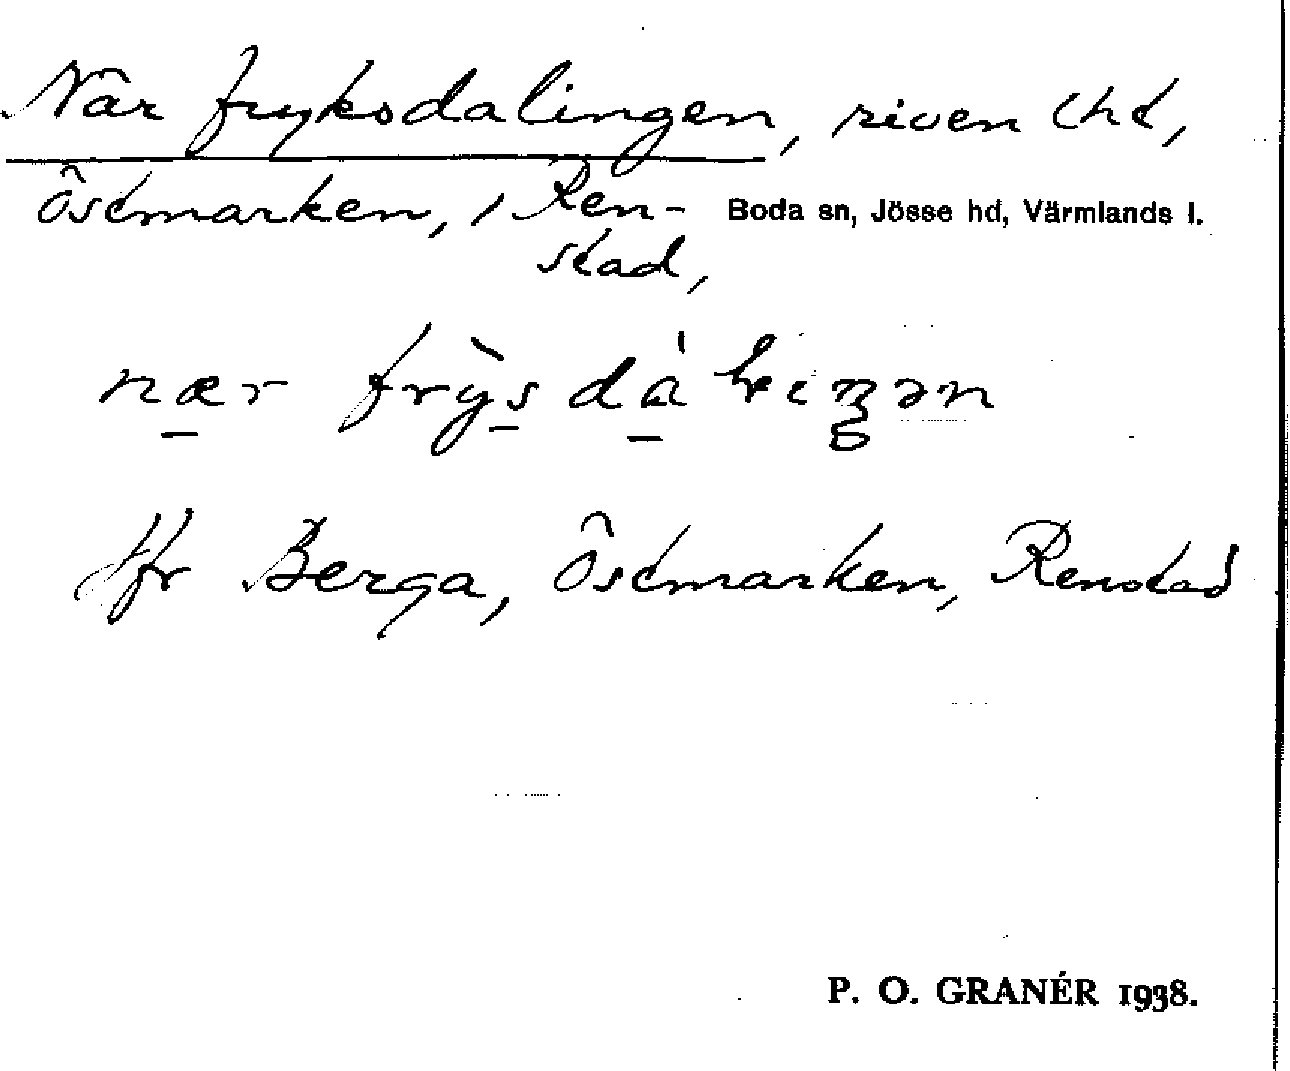 När fryksdalingen, riven lht,
Östmarken, i Ren- Boda sn, Jösse hd, Värmlands l.
stad,
nær
Jfr Berga, Östmarken, Renstad
P. O. GRANÉR 1938.